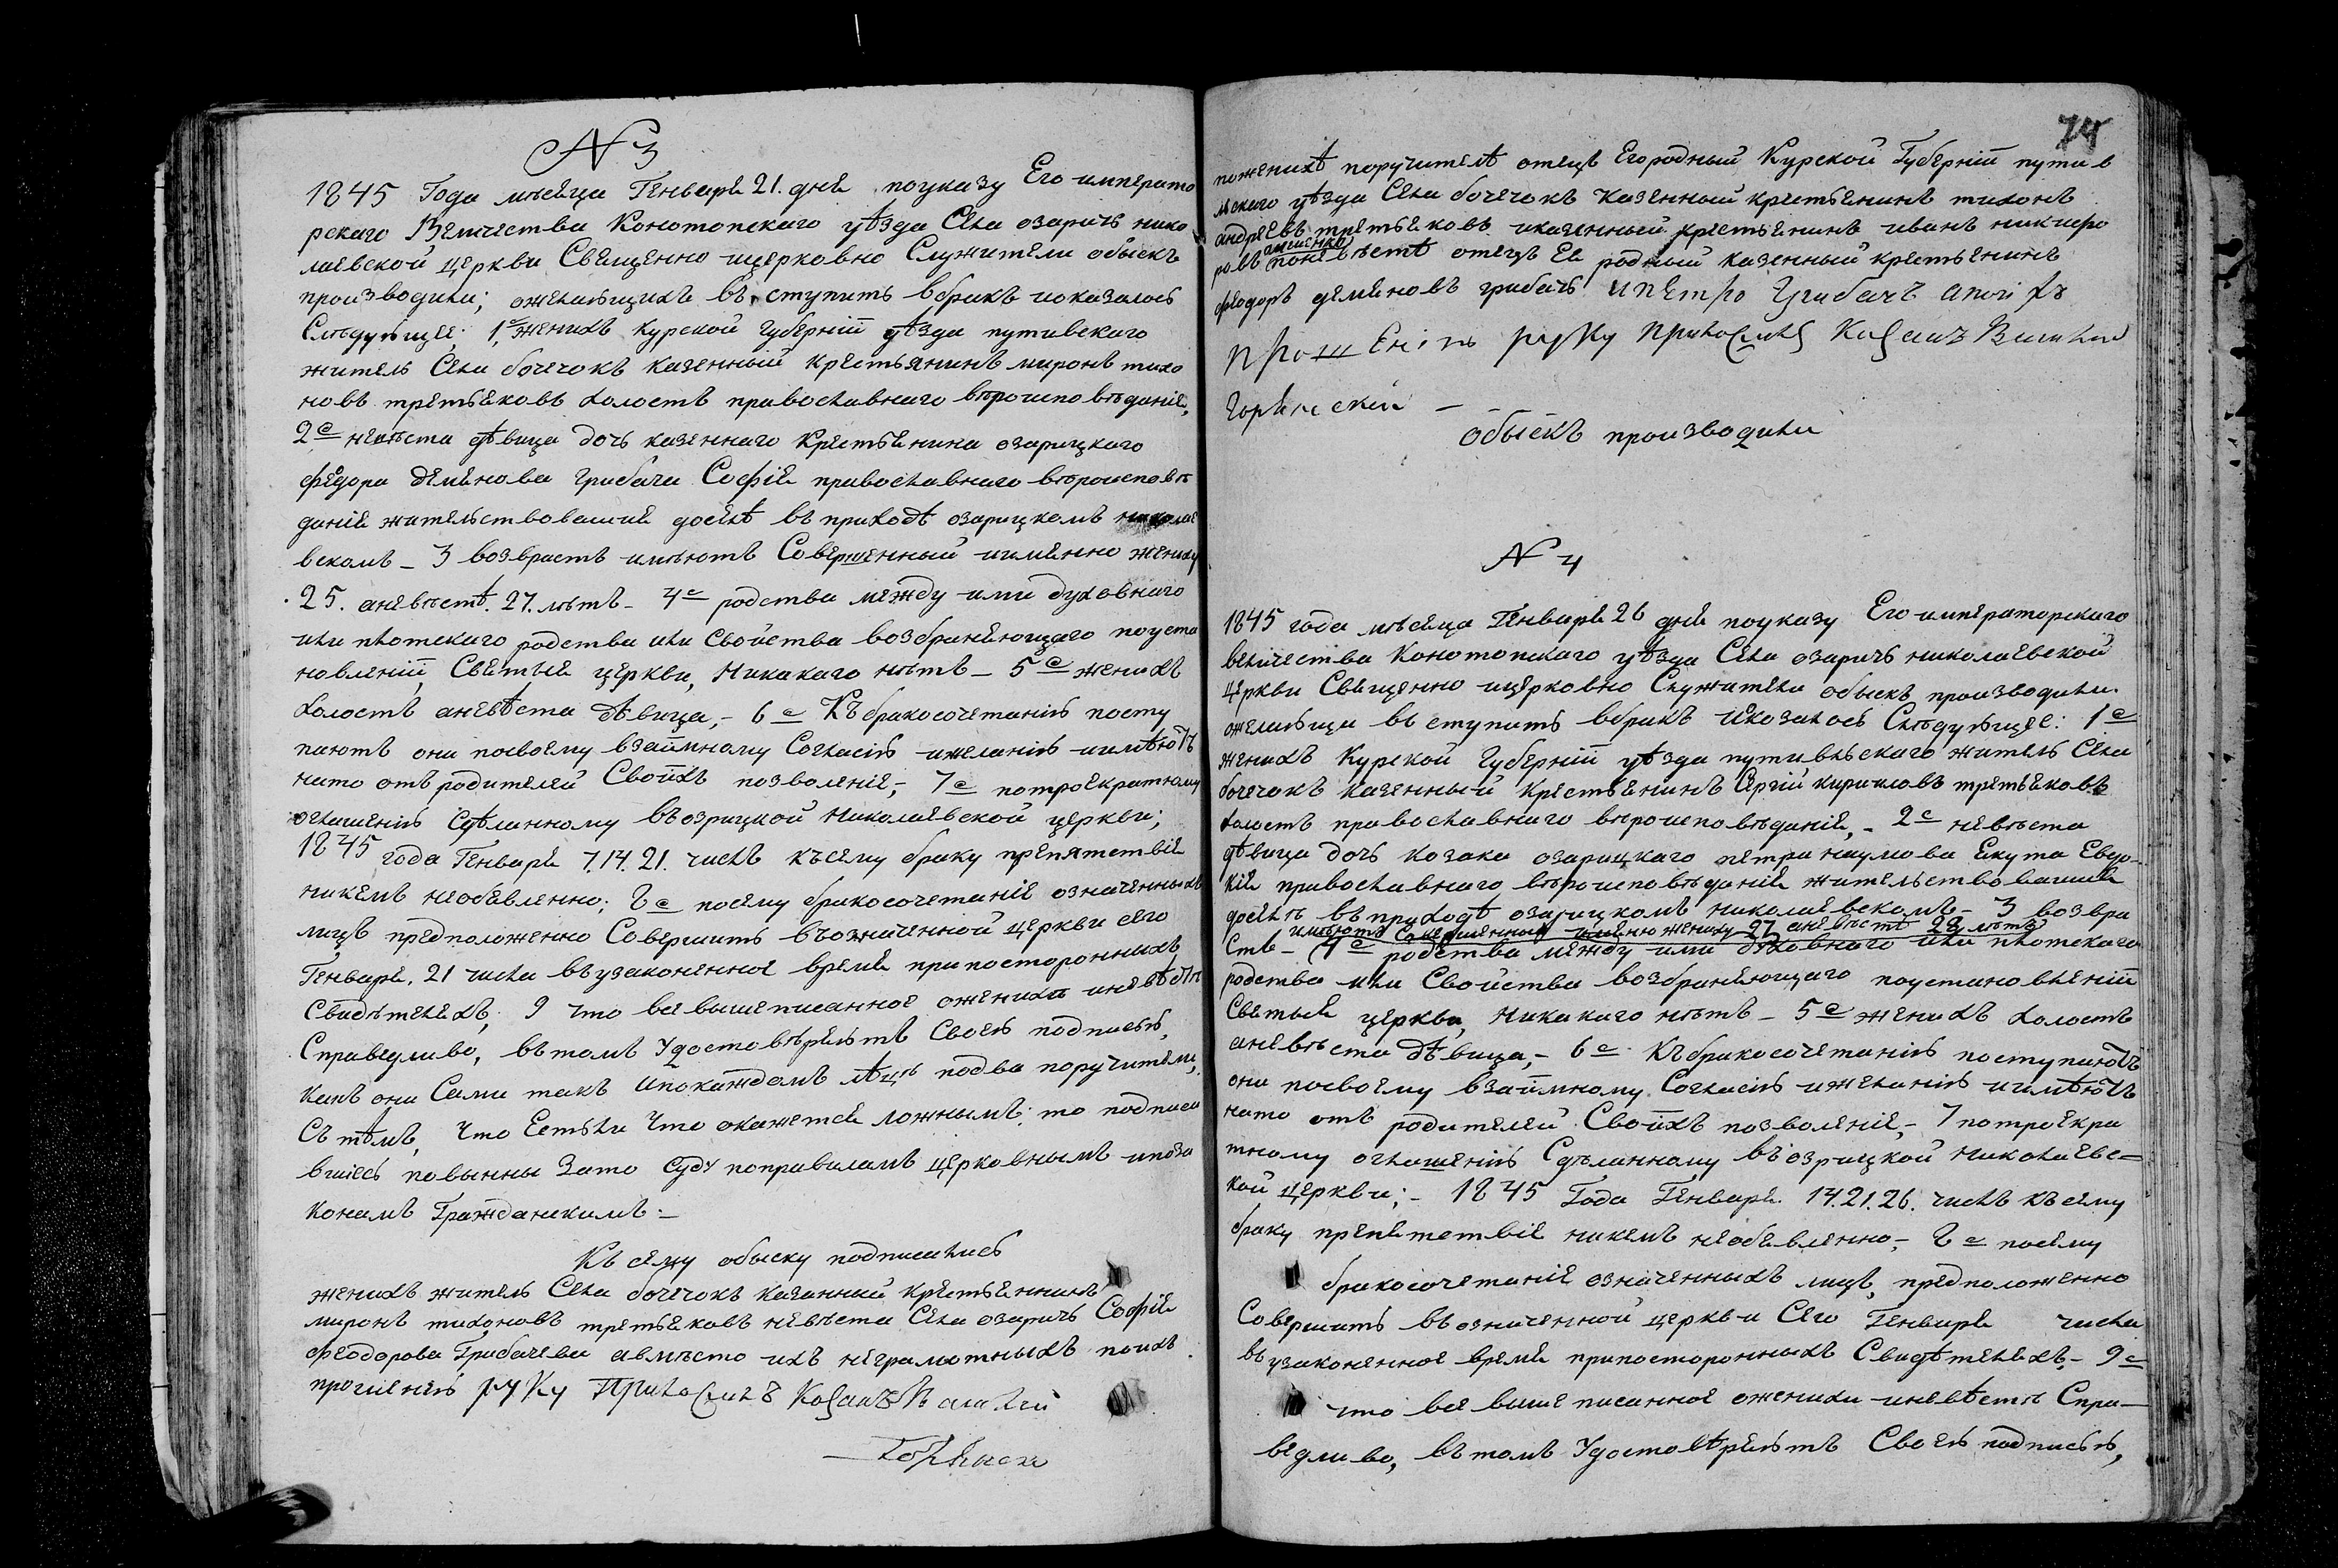 N 3
1845 Года мѣсяца Генваря 21. дня поуказу Его императо
рскаго Величества Конотопскаго уѣзда Села озаричь нико
лаевской церкви Священно ицерковно Служители обыскъ
производили; ожелающихъ въступить вбракъ иоказалось
Слѣдующее; 1е женихъ курской губернiи уѣзда путивскаго
житель Села бочечокъ казенный крестьянинъ миронъ тихо
новъ третьяковъ холостъ православнаго вѣроисповѣданiя,
2е невѣста дѣвица дочь казеннаго крестьянина озарицкаго
федора деменова грибача Софiя православнаго вѣроисповѣ
данiя жительствовавшая доселѣ въприходѣ озарицкомъ николае
вскомъ – 3 возврастъ имѣютъ Совершенный иименно жениху
25. аневѣстѣ. 27. лѣтъ – 4е родства между ими духовнаго
или плотскаго родства или Свойства возбраняющаго поуста
новленiи Святыя церкви, Никакаго нѣтъ – 5е женихъ
холостъ аневѣста дѣвица, – 6е Къбракосочетанiю посту
паютъ они посвоему взаимному Согласiю ижеланiю иимѣютъ
нато отъ родителей Своихъ позволенiе, – 7е потроекратному
оглашенiю Сдѣланному въозрицкой николаевской церкви;
1845 года Генваря 7.14.21. числъ къСему браку препятствiя
никемъ необявленно; 8е посему бракосочетанiе означенныхъ
лицъ предположенно Совершить въозначенной церкви сего
Генваря. 21 числа въузаконенное время припостороннихъ
Свидѣтеляхъ, 9 что всѣ вышеписанное оженихѣ иневѣстѣ
Справедливо, вътомъ Удостовѣряютъ Своею подписью,
какъ они Сами такъ ипокаждомъ лѣцѣ подва поручителя,
Съ тѣмъ, что Естьли что окажется ложнымъ; то подписа
вшiесь повынны Зато Суду поправиламъ церковнымъ ипоза
конамъ Гражданскимъ –
Къ сему обыску подписались
женихъ житель Села бочечокъ казанный крестьяннинъ
миронъ тихоновъ третьяковъ невѣста Села озаричь Софiя
феодорова Грибачева авмѣсто ихъ неграмотныхъ поихъ
прошенiю руку Приложилъ Козакъ Василий
74
поженихѣ поручителѣ отецъ Егородный Курской Губернiи путив
льскаго уѣзда Села бочечокъ казенный крестьянинъ тихонъ
андреевъ третьяковъ иказенный крестьянинъ иванъ никифо
ровъ поневѣстѣ отецъ Ея родный казенный крестьянинъ
феодоръ деменовъ грибачъ ипетро Грибачъ апоiхъ
прошЕнiю руку приложилъ Козакъ Василий
обыскъ производили
N 4
1845 года мѣсяца Генваря 26 дня поуказу Его императорскаго
величества Конотопскаго уѣзда Села озаричь николаевской
церкви Священно ицерковно Служители обыскъ производили.
ожелающи въступить вбракъ иказалось Слѣдующее: 1е
женихъ Курской Губернiи уѣзда путивльскаго житель Села
бочечокъ казенный крестьянинъ Сергiй кириловъ третьяковъ
холостъ православнаго вѣроисповѣданiя, – 2е невѣста
дѣвица дочь козака озарицкаго петра наумова Екута Евдо–
кiя православнаго вѣроисповѣданiя жительствовавшая
доселѣ въприходѣ озарицкомъ николаевскомъ – 3 возвра
имѣютъ Совершенный иименно жениху 27 аневѣстѣ 28 лѣтъ
стъ – 4е родства между ими духовнаго или плотскаго
родства или Свойства возбраняющаго поустановленiи
Святыя церкви, никакаго нѣтъ – 5е женихъ холостъ
аневѣста дѣвица, – 6е Къбракосочетанiю поступаютъ
они посвоему взаимному Согласiю ижеланiю иимѣютъ
нато отъ родителей Своихъ позволенiе, – 7 потроекра
тному оглашенiю Сдѣланному въозрицкой николаевс=
кой церкви; – 1845 Года Генваря. 14.21.26. числъ къСему
браку препятствiя никемъ необявленно, – 8е посему
бракосочетанiе означенныхъ лицъ, предположенно
Совершить въозначенной церкви Сего Генваря числа
въузаконенное время припостороннихъ Свидѣтеляхъ, – 9е
что всѣ вышеписанное ожениха иневѣстѣ Спра–
ведливо, вътомъ Удостовѣряютъ Своею подписью,